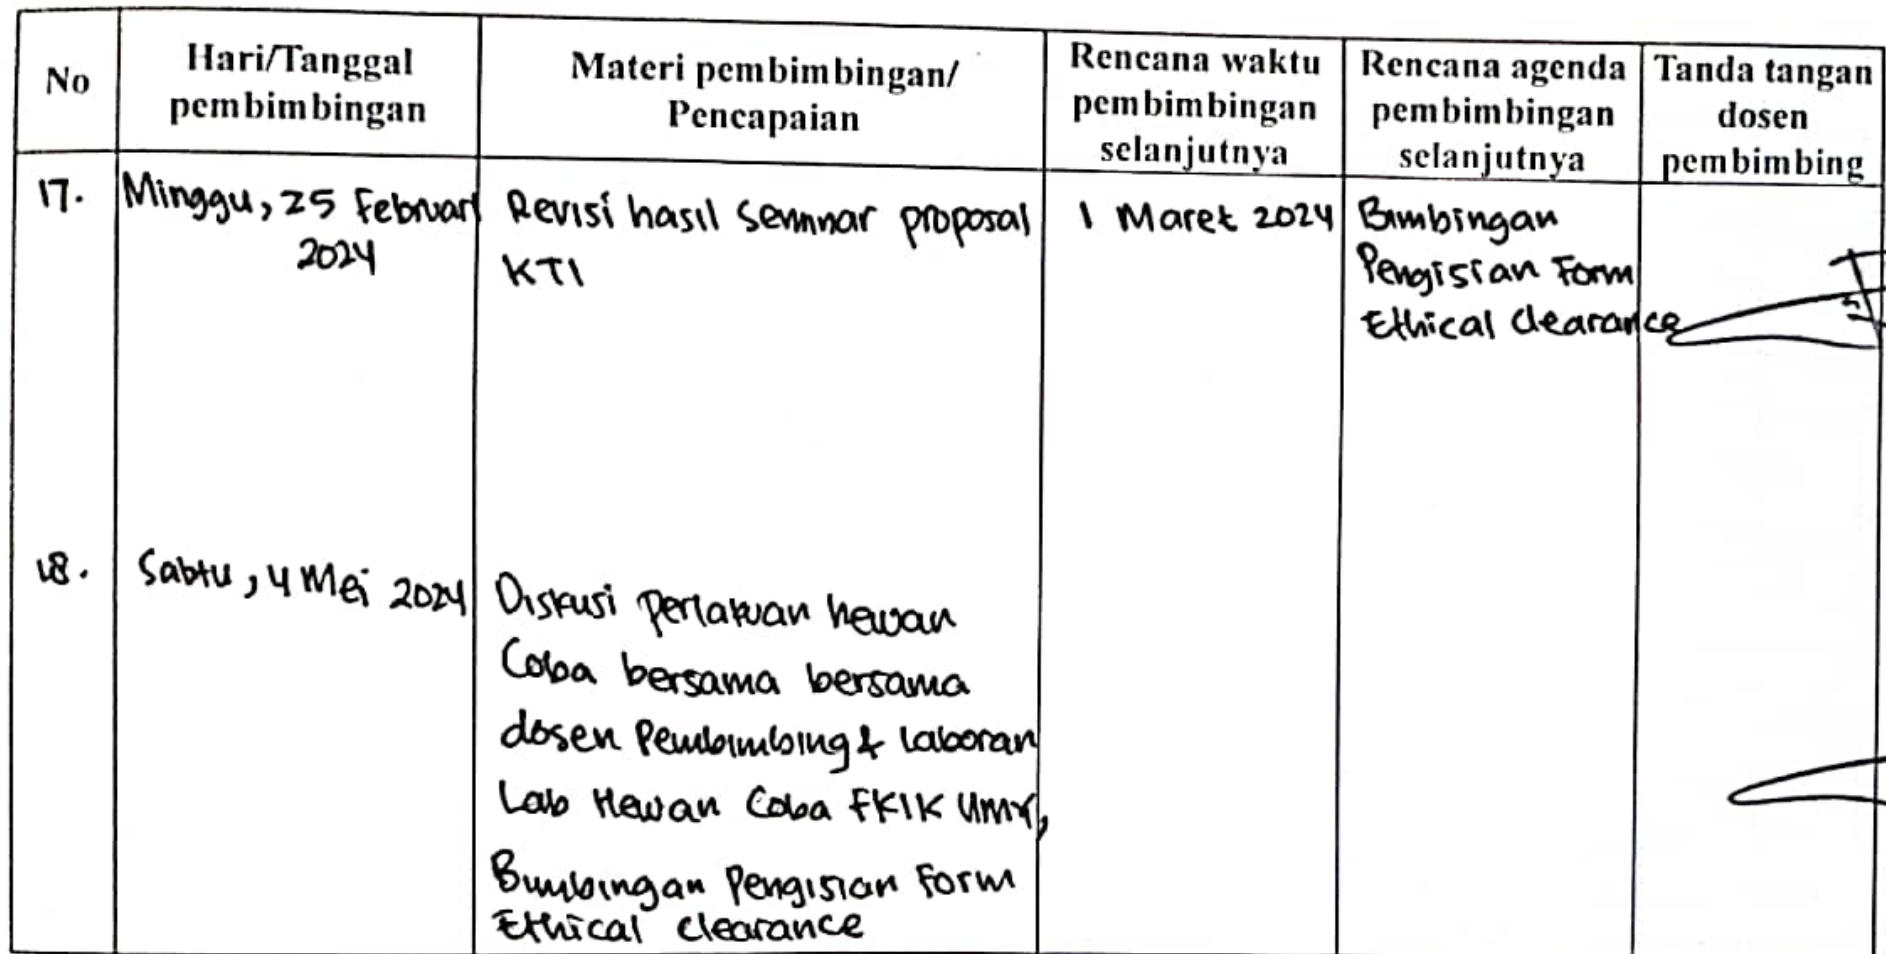 No
Hari/Tanggal
pembimbingan
Materi pembimbingan/
Pencapaian
Rencana waktu
pembimbingan
selanjutnya
Rencana agenda
pembimbingan
selanjutnya
Tanda tangan
dosen
pembimbing
17.
Minggu, 25 Februari
2024
Revisi hasil seminar proposal
KTI
1 Maret 2024
Bimbingan
Pengisian Form
Ethical Clearance
18.
Sabtu, 4 Mei 2024
Diskusi perlakuan hewan
Coba bersama bersama
dosen Pembimbing & Laboran
Lab Hewan Coba FKIK UMY,
Bimbingan Pengisian Form
Ethical Clearance